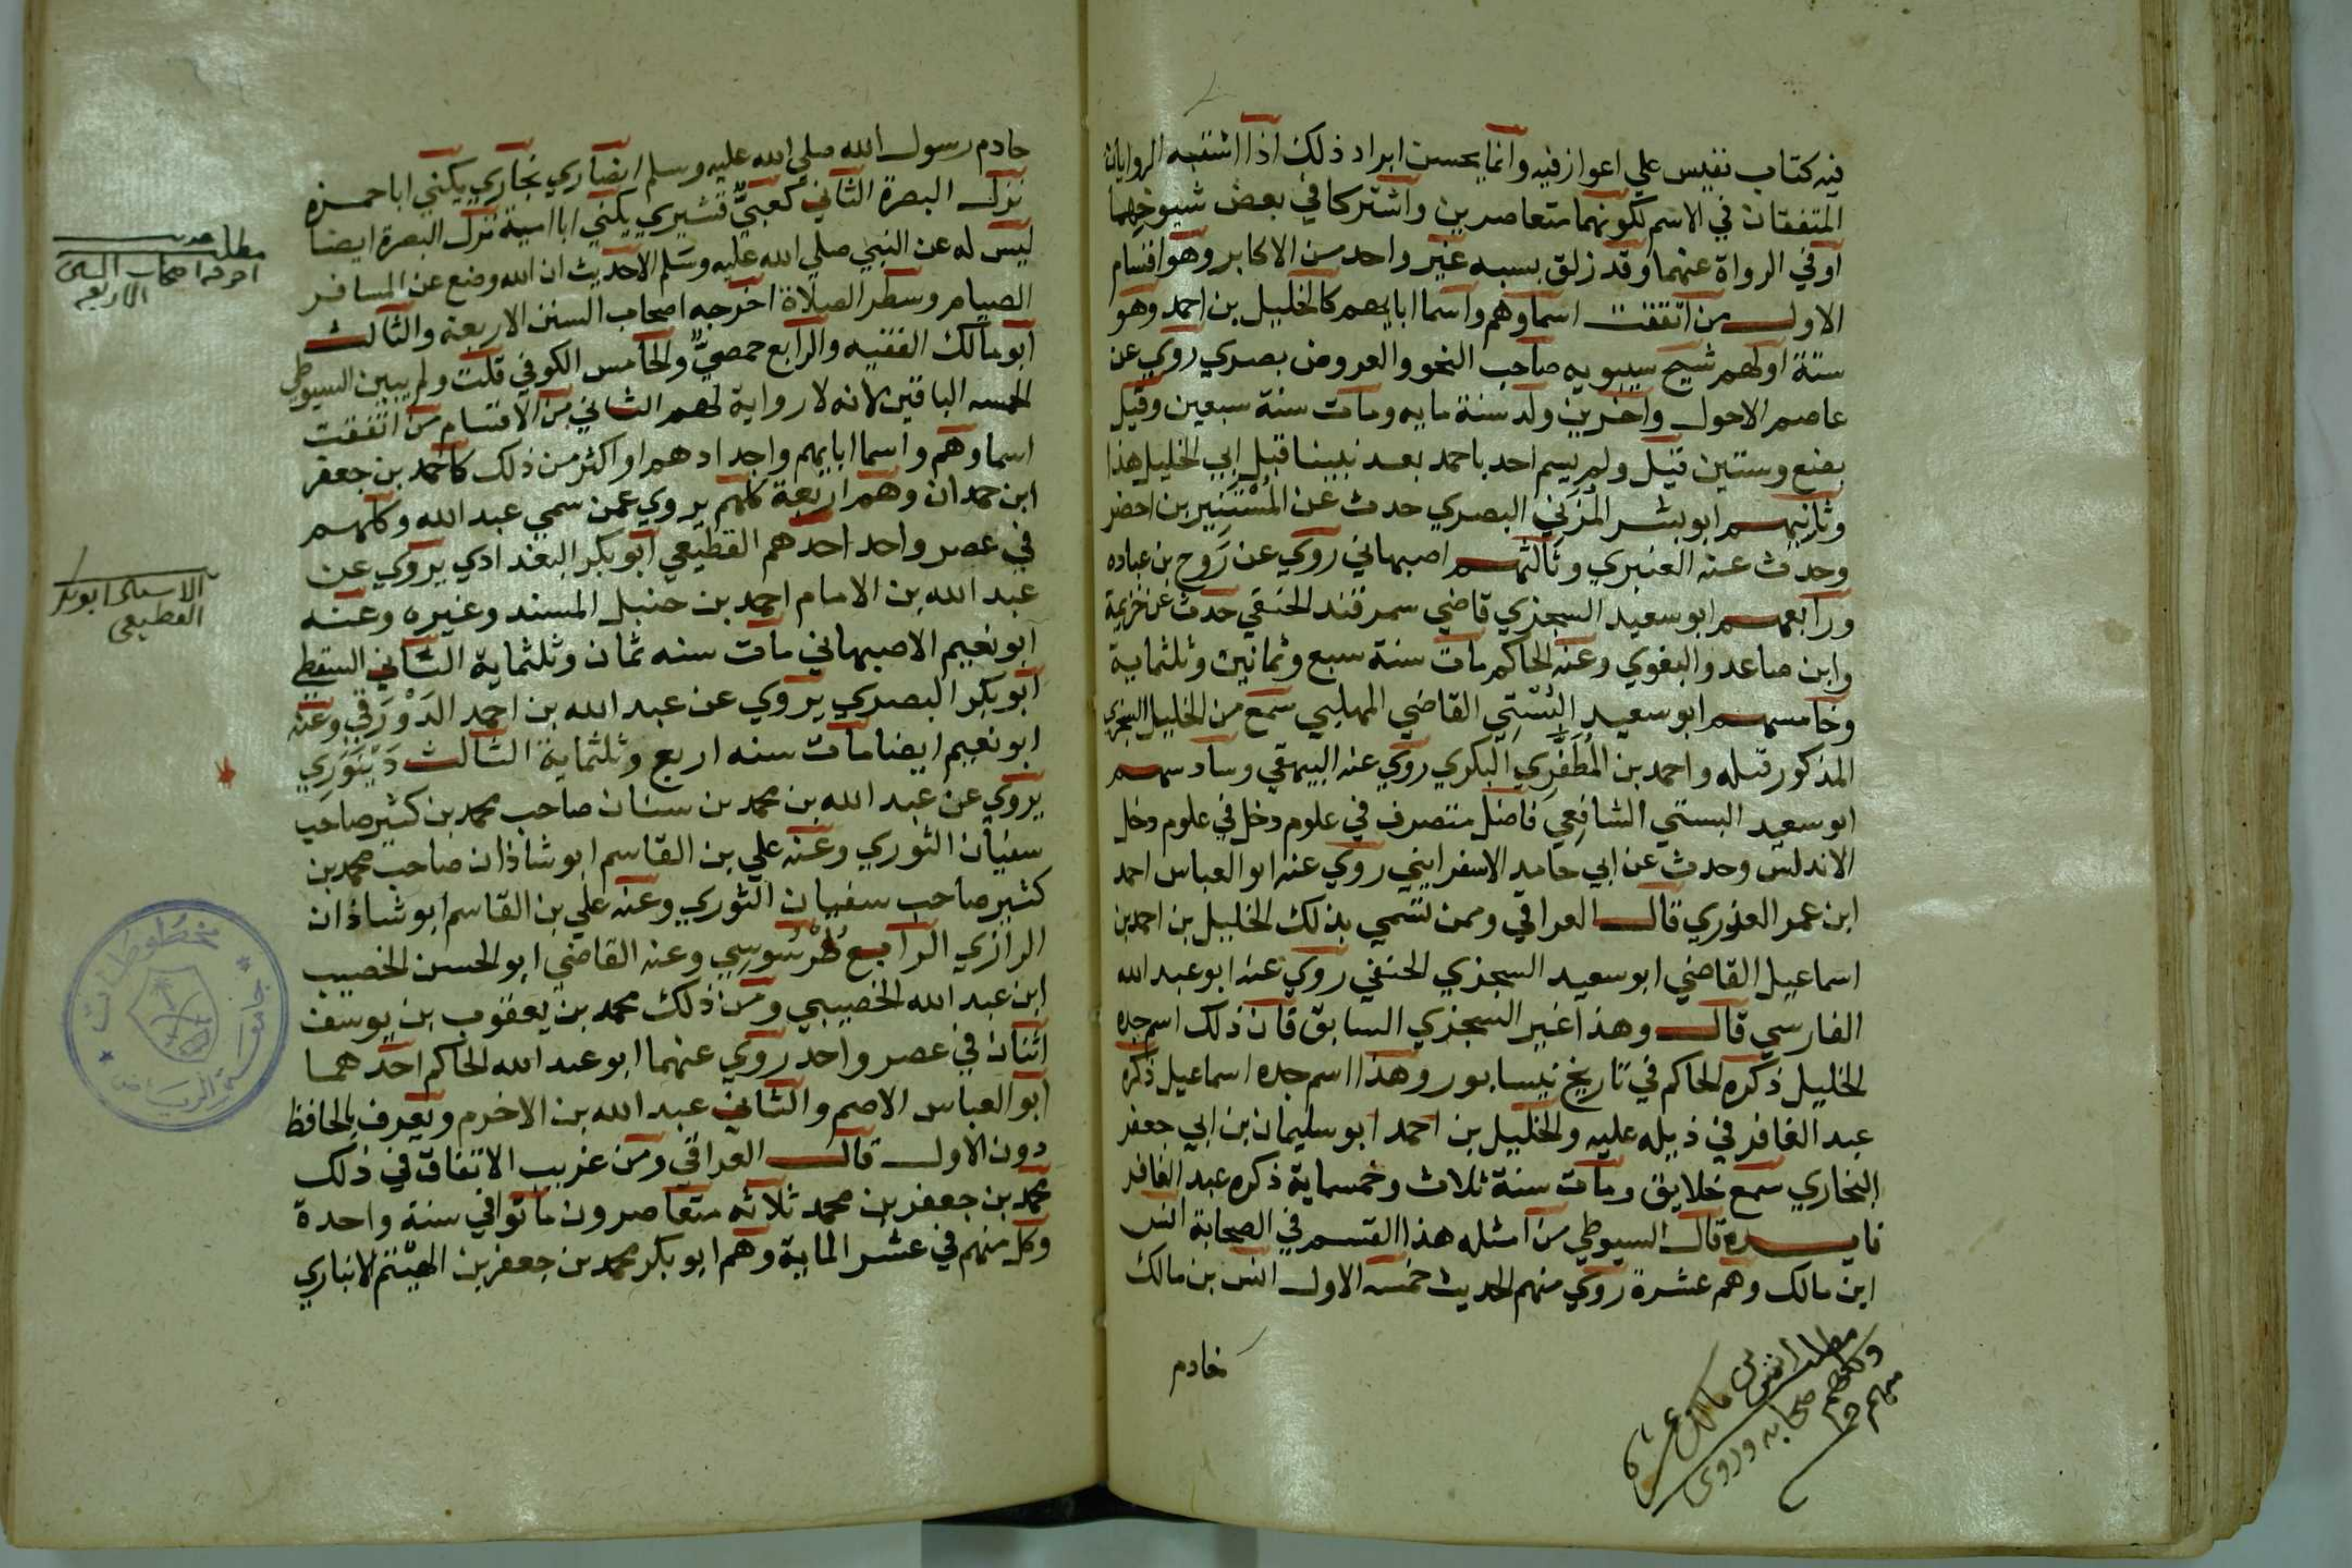 فيه كتاب نفيس علي اعواز فيه وانما يحسن ايراد ذلك اذا اشتبه الروايان
المتفقان في الاسم لكونهما متعاصرين واشتركا في بعض شيوخهما
أو في الرواة عنهما وقد زلق بسببه غير واحد من الاكابر وهو اقسام
الاول من اتفقت اسماوهم واسما ابايهم كالخليل بن احمد وهو
ستة اولهم شيخ سيبويه صاحب النحو والعروض بصري روي عن
عاصم الاحول واخرين ولد سنة مايه ومات سنة سبعين وقيل
بضع وستين قيل ولم يسم احد باحمد بعد نبينا قبل ابي الخليل هذا
وثانيهم ابو بشر المزني البصري حدث عن المستنير بن اخضر
وحدث عنه العنبري وثالثهم اصبهاني روي عن روح بن عباده
ورابعهم ابو سعيد السجزي قاضي سمرقند الحنفي حدث عن خزيمة
وابن صاعد والبغوي وعنه الحاكم مات سنة سبع وثمانين وثلثماية
وخامسهم ابو سعيد البُسْتِي القاضي المهلبي سمع من الخليل السجزي
المذكور قبله واحمد بن المظفري البكري روي عنه البيهقي وسادسهم
ابو سعيد البستي الشافعي فاضل متصرف في علوم دخل في علوم دخل
الاندلس وحدث عن ابي حامد الاسفرايني روي عنه ابو العباس احمد
ابن عمر العذري قال العراقي وممن تسمي بذلك الخليل بن احمد بن
اسماعيل القاضي ابو سعيد السجزي الحنفي روي عنه ابو عبد الله
الفارسي قال وهذا غير السجزي السابق فان ذلك اسم جده
الخليل ذكره الحاكم في تاريخ نيسابور وهذا اسم جده اسماعيل ذكره
عبد الغافر في ذيله عليه والخليل بن احمد ابو سليمان بن ابي جعفر
البخاري سمع خلايق ومات سنة ثلاث وخمسماية ذكره عبد الغافر
فايدة قال السيوطي من امثله هذا القسم في الصحابة انس
ابن مالك وهم عشرة روي منهم الحديث خمسه الاول انس بن مالك
خادم
مطلب انس بن مالك عشرة
وكلهم صحابه وروى
منهم
خادم رسول الله صلي الله عليه وسلم انصاري نجاري يكني ابا حمزه
نزل البصرة الثاني كعبيٌّ قشيري يكني ابا امية نزل البصرة ايضا
ليس له عن النبي صلي الله عليه وسلم الا حديث ان الله وضع عن المسافر
الصيام وسطر الصلاة اخرجه اصحاب السنن الاربعة والثالث
ابو مالك الفقيه والرابع حمصيٌّ والخامس الكوفي قلت ولم يبين السيوطي
الخمسه الباقين لانه لا رواية لهم الثاني من الاقسام من اتفقت
اسماوهم واسما ابايهم واجدادهم او اكثر من ذلك كاحمد بن جعفر
ابن حمدان وهم اربعة كلهم يروي عمن سمي عبد الله وكلهم
في عصر واحد احدهم القطيعي ابو بكر البغدادي يروي عن
عبد الله بن الامام احمد بن حنبل المسند وغيره وعنه
ابو نعيم الاصبهاني مات سنه ثمان وثلثماية الثاني السقطي
ابو بكر البصري يروي عن عبد الله بن احمد الدَوْرَقي وعنه
ابو نعيم ايضا مات سنه اربع وثلثماية الثالث دَيْنَوَرِي
يروي عن عبد الله بن محمد بن سنان صاحب محمد بن كثير صاحب
سفيان الثوري وعنه علي بن القاسم ابو شاذان صاحب محمد بن
كثير صاحب سفيان الثوري وعنه علي بن القاسم ابو شاذان
الرازي الرابع طُرْسُوسِي وعنه القاضي ابو الحسن الخصيب
ابن عبد الله الخصيبي ومن ذلك محمد بن يعقوب بن يوسف
اثنان في عصر واحد روي عنهما ابو عبد الله الحاكم احدهما
ابو العباس الاصم والثاني عبد الله بن الاخرم ويعرف بالحافظ
دون الاول قال العراقي ومن غريب الاتفاق في ذلك
محمد بن جعفر بن محمد ثلاثه متعاصرون ماتوا في سنة واحدة
وكل منهم في عشر الماية وهم ابو بكر محمد بن جعفر بن الهيثم الانباري
مطلب حديث
اخرجه اصحاب السنن
الاربعه
ابو بكر
القطيعي
مخطوطات
جامعة الرياض